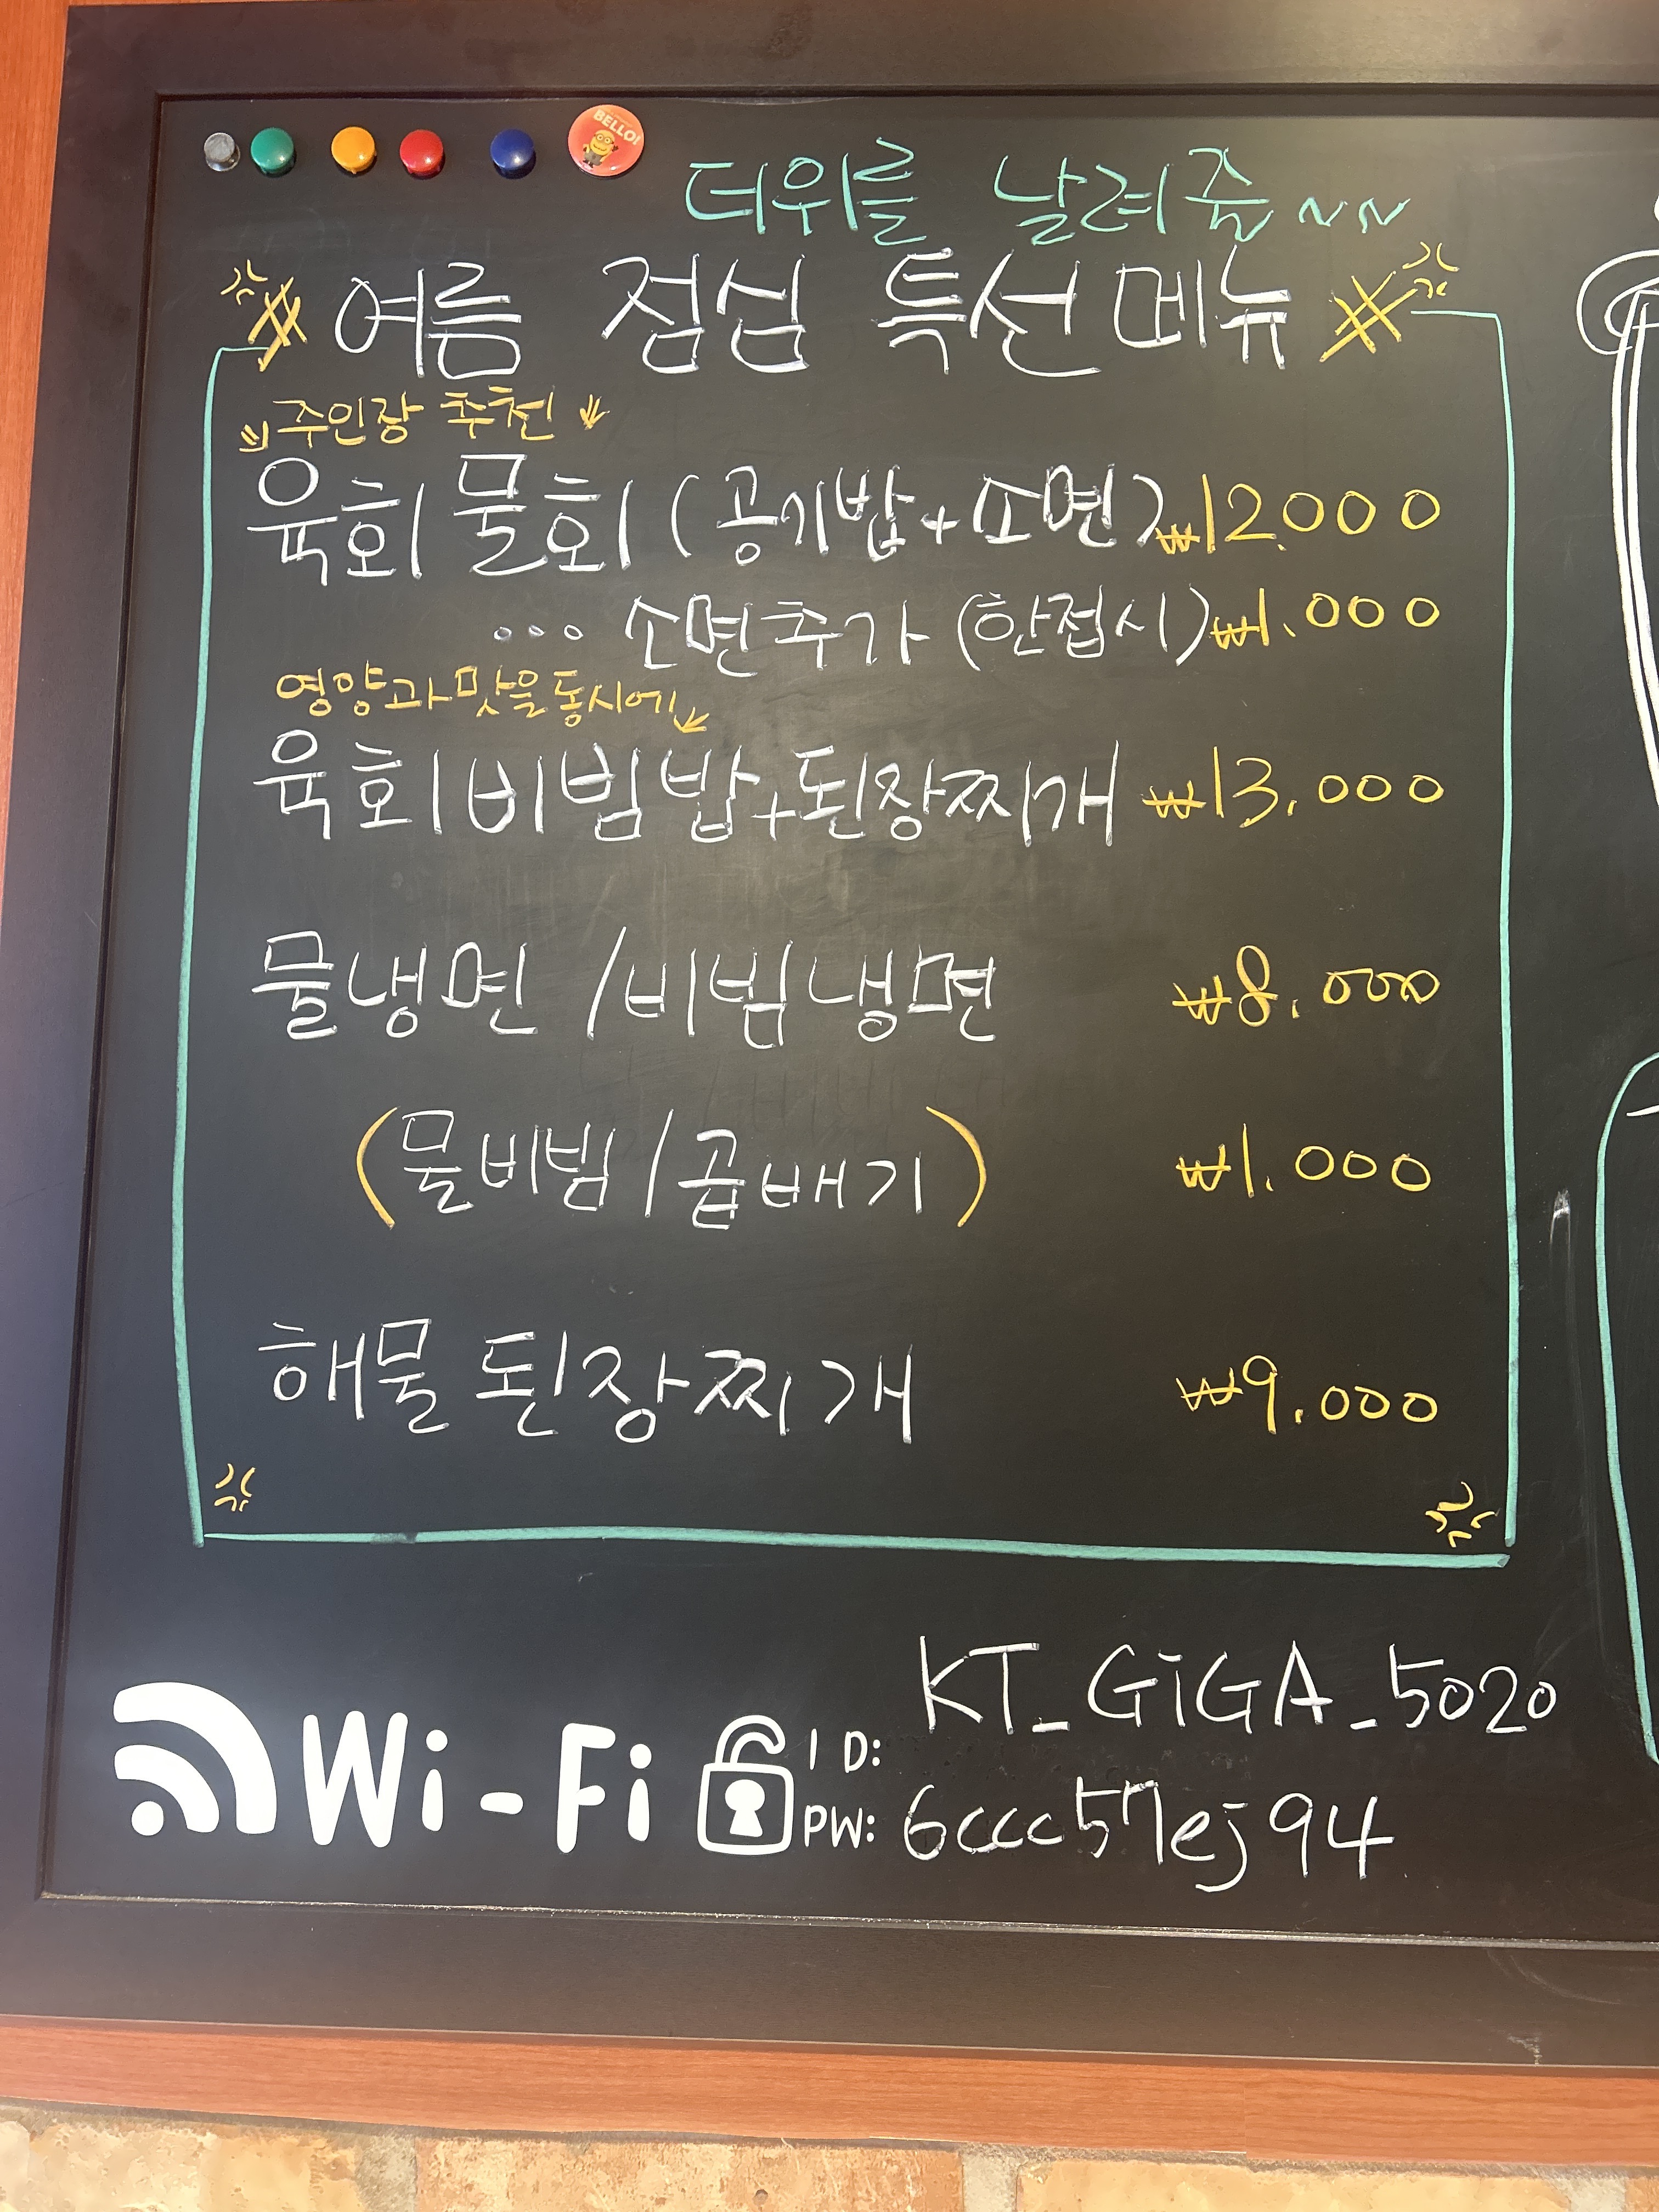 BELLO!
더위를 날려줌 ~~
여름 점심 특선메뉴
주인장 추천
육회물회 (공기밥+소면) ₩12.000
... 소면추가 (한접시) ₩1.000
영양과 맛을 동시에
육회비빔밥+된장찌개 ₩13.000
물냉면 / 비빔냉면 ₩8.000
(물비빔 / 곱배기) ₩1.000
해물 된장찌개 ₩9.000
Wi-Fi
ID: KT_GiGA_5020
PW: 6ccc57ej94